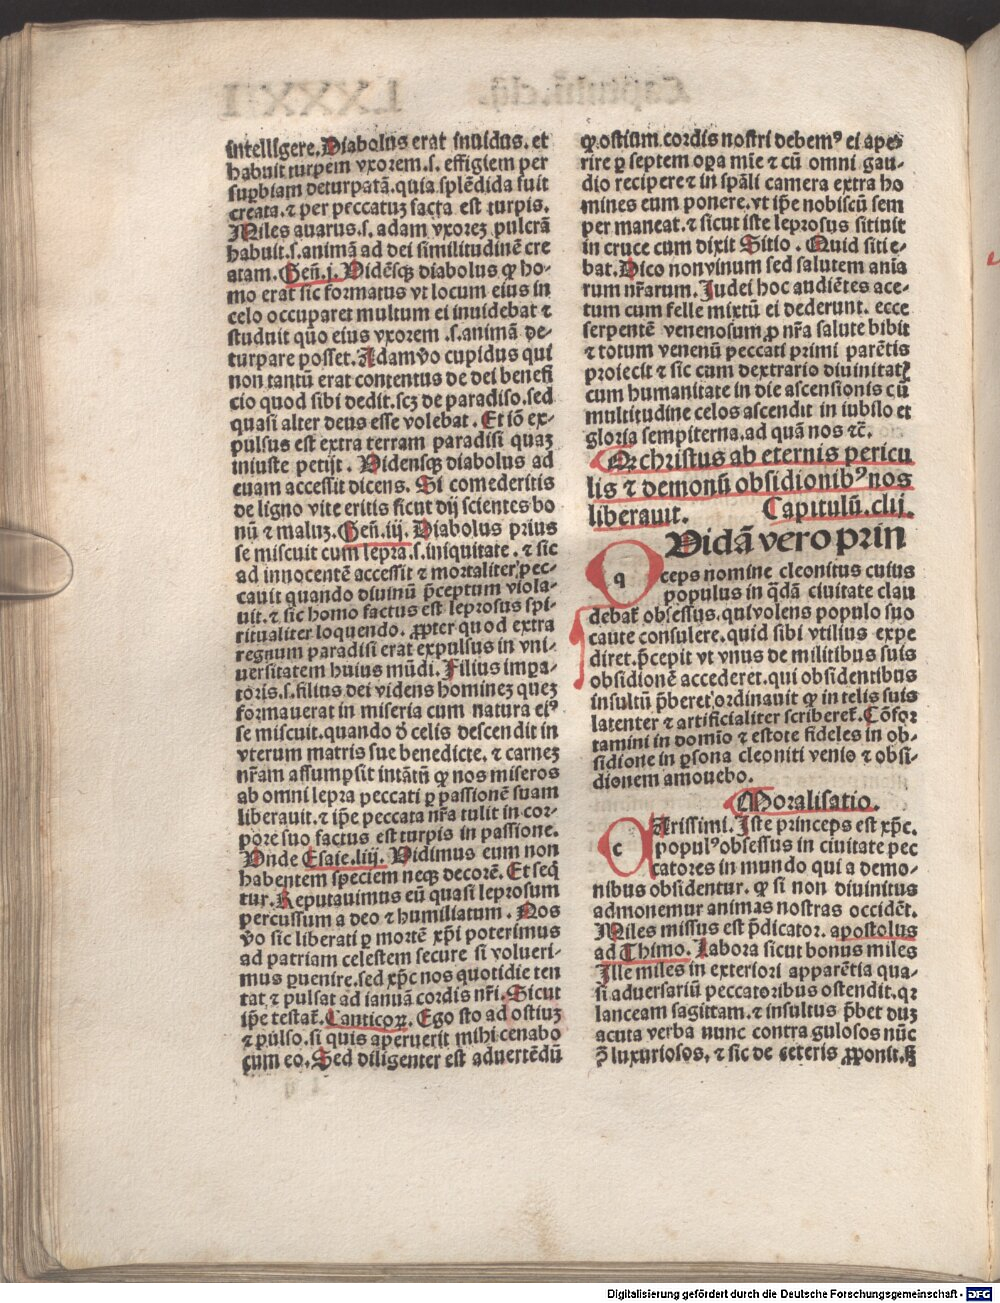 intelligere. Diabolus erat inuidus. et
habuit turpem vxorem .s. effigiem per
suꝑbiam deturpatā. quia splēdida fuit
creata. ⁊ per peccatuꝫ facta est turpis.
Miles auarus .s. adam vxoreꝫ pulcrā
habuit .s. animā ad dei similitudinē cre
atam. Geñ. j. Vidēsqꝫ diabolus ꝙ ho-
mo erat sic formatus vt locum eius in
celo occuparet multum ei inuidebat ⁊
studuit quo eius vxorem .s. animā de-
turpare posset. Adam v̄o cupidus qui
non tantū erat contentus de dei benefi
cio quod sibi dedit. scꝫ de paradiso. sed
quasi alter deus esse volebat. Et iō ex-
pulsus est extra terram paradisi quaꝫ
iniuste petijt. Vidensqꝫ diabolus ad
euam accessit dicens. Si comederitis
de ligno vite eritis sicut dij scientes bo
nū ⁊ maluꝫ. Geñ. iij. Diabolus prius
se miscuit cum lepra .s. iniquitate. ⁊ sic
ad innocentē accessit ⁊ mortaliter pec-
cauit quando diuinū p̄ceptum viola-
uit. ⁊ sic homo factus est leprosus spi-
ritualiter loquendo. ꝓpter quod extra
regnum paradisi erat expulsus in vni-
uersitatem huius mūdi. Filius impa-
toris .s. filius dei videns homineꝫ queꝫ
formauerat in miseria cum natura eiꝰ
se miscuit. quando d̄ celis descendit in
vterum matris sue benedicte. ⁊ carneꝫ
nr̄am assumpsit intātū ꝙ nos miseros
ab omni lepra peccati ꝑ passionē suam
liberauit. ⁊ ip̄e peccata nr̄a tulit in cor-
pore suo factus est turpis in passione.
Vnde Esaie. liij. Vidimus eum non
habentem speciem neqꝫ decorē. Et seq̄
tur. Reputauimus eū quasi leprosum
percussum a deo ⁊ humiliatum. Nos
v̄o sic liberati ꝑ mortē xp̄i poterimus
ad patriam celestem secure si volueri-
mus ꝑuenire. sed xp̄c nos quotidie ten
tat ⁊ pulsat ad ianuā cordis nr̄i. Sicut
ip̄e testat̄. Canticoꝝ. Ego sto ad ostiuꝫ
⁊ pulso. si quis aperuerit mihi cenabo
cum eo. Sed diligenter est aduertēdū
ꝙ ostium cordis nostri debemꝰ ei ape
rire ꝑ septem oꝑa mīe ⁊ cū omni gau-
dio recipere ⁊ in sp̄ali camera extra ho
mines eum ponere. vt ip̄e nobiscū sem
per maneat. ⁊ sicut iste leprosus sitiuit
in cruce cum dixit Sitio. Quid siti e-
bat. Dico non vinum sed salutem aniā
rum nr̄arum. Judei hoc audiētes ace-
tum cum felle mixtū ei dederunt. ecce
serpentē venenosum ꝓ nr̄a salute bibit
⁊ totum venenū peccati primi parētis
proiecit ⁊ sic cum dextrario diuinitatꝭ
cum humanitate in die ascensionis cū
multitudine celos ascendit in iubilo et
gloria sempiterna. ad quā nos ⁊c̄.
Qr christus ab eternis pericu
lis ⁊ demonū obsidionibꝰ nos
liberauit. Capitulū. clij.
Vidā vero prin
q ceps nomine cleonitus cuius
populus in q̄dā ciuitate clau
debat̄ obsessus. qui volens populo suo
caute consulere. quid sibi vtilius expe
diret. p̄cepit vt vnus de militibus suis
obsidionē accederet. qui obsidentibus
insultū p̄beret ordinauit ꝙ in telis suis
latenter ⁊ artificialiter scriberet̄. Cōfor
tamini in domīo ⁊ estote fideles in ob-
sidione in ꝑsona cleoniti venio ⁊ obsi-
dionem amouebo.
Moralisatio.
c Arissimi. Iste princeps est xp̄c.
populꝰ obsessus in ciuitate pec
catores in mundo qui a demo-
nibus obsidentur. ꝙ si non diuinitus
admonemur animas nostras occidēt.
Miles missus est p̄dicator. apostolus
ad Thimo. Labora sicut bonus miles
Ille miles in exteriori apparētia qua-
si aduersariū peccatoribus ostendit. qꝛ
lanceam sagittam. ⁊ insultus p̄bet duꝫ
acuta verba nunc contra gulosos nūc
ↄ̄ luxuriosos. ⁊ sic de ceteris ꝓponit. sꝫ
Digitalisierung gefördert durch die Deutsche Forschungsgemeinschaft - DFG